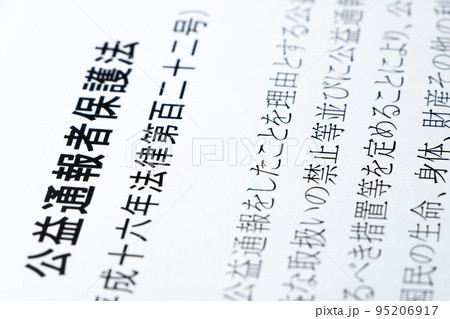 公益通報者保護法
平成十六年法律第百二十二号)
公益通報をしたことを理由とする公
な取扱いの禁止等並びに公益通報
るべき措置等を定めることにより、公
国民の生命、身体、財産その他の利
PIXTA
pixta.jp - 95206917